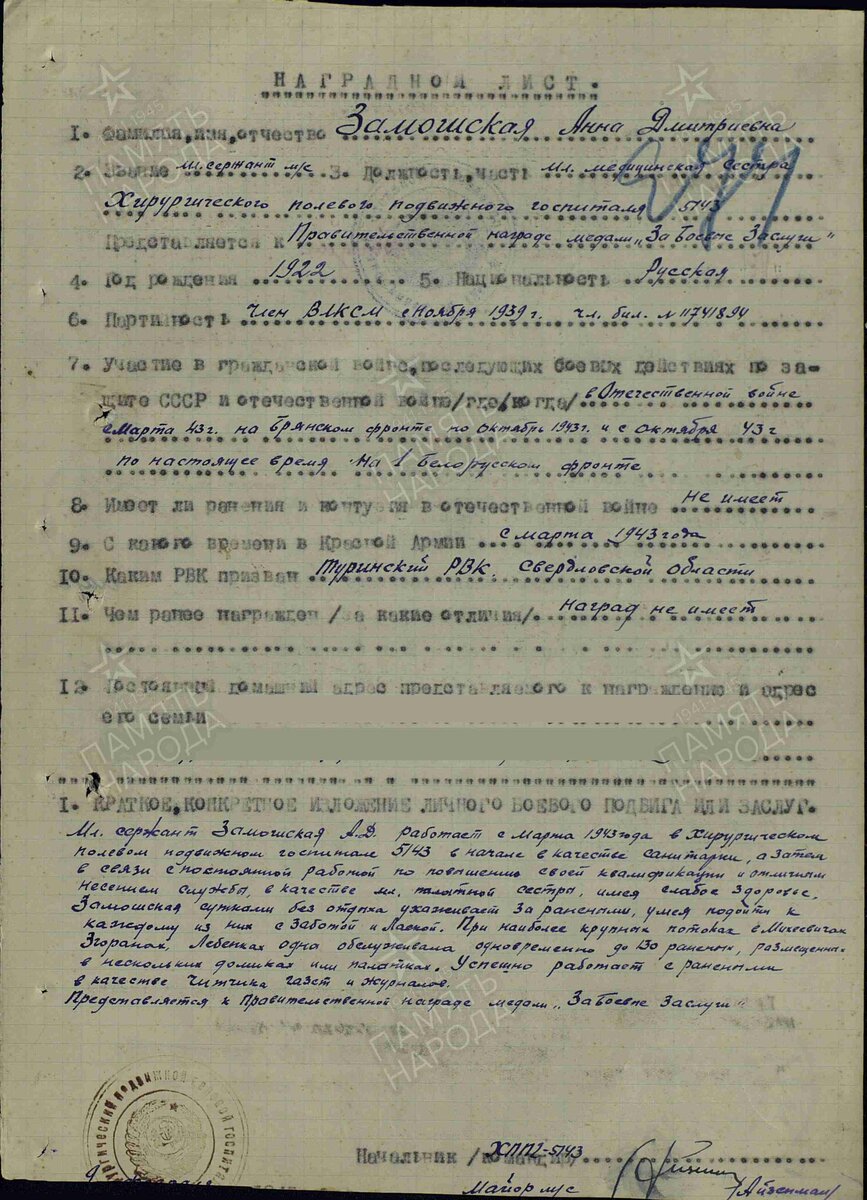 НАГРАДНОЙ ЛИСТ.
1. Фамилия, имя, отчество Замошская Анна Дмитриевна
2. Звание мл. сержант м/с 3. Должность, часть мл. медицинская сестра
Хирургического полевого подвижного госпиталя 5143
Представляется к Правительственной награде медали „За Боевые Заслуги"
4. Год рождения 1922 5. Национальность Русская
6. Партийность Член ВЛКСМ с Ноября 1939 г. чл. бил. № 11741894
7. Участие в гражданской войне, последующих боевых действиях по за-
щите СССР и отечественной войне /где, когда/ в Отечественной войне
с Марта 43 г. на Брянском фронте по октябрь 1943 г. и с октября 43 г
по настоящее время на 1 Белорусском фронте
8. Имеет ли ранения и контузия в отечественной войне не имеет
9. С какого времени в Красной Армии с марта 1943 года
10. Каким РВК призван Туринский РВК. Свердловской области
11. Чем ранее награжден /за какие отличия/ наград не имеет
12 Постоянный домашний адрес представляемого к награждению и адрес
его семьи
I. КРАТКОЕ, КОНКРЕТНОЕ ИЗЛОЖЕНИЕ ЛИЧНОГО БОЕВОГО ПОДВИГА ИЛИ ЗАСЛУГ.
Мл. сержант Замошская А.Д. работает с Марта 1943 года в Хирургическом
полевом подвижном госпитале 5143 в начале в качестве санитарки, а затем
в связи с постоянной работой по повышению своей квалификации и отличным
несением службы, в качестве мл. палатной сестры, имея слабое здоровье,
Замошская сутками без отдыха ухаживает за ранеными, умея подойти к
каждому из них с Заботой и Лаской. При наиболее крупных потоках в Михеевичах
Згоранах, Лебенках одна обслуживала одновременно до 130 раненых, размещенных
в нескольких домиках или палатках. Успешно работает с ранеными
в качестве Читчика газет и журналов.
Представляется к Правительственной награде медали „За Боевые Заслуги"
Начальник /командир/ ХППГ-5143
Майор м/с /Айзенман/
ПАМЯТЬ НАРОДА